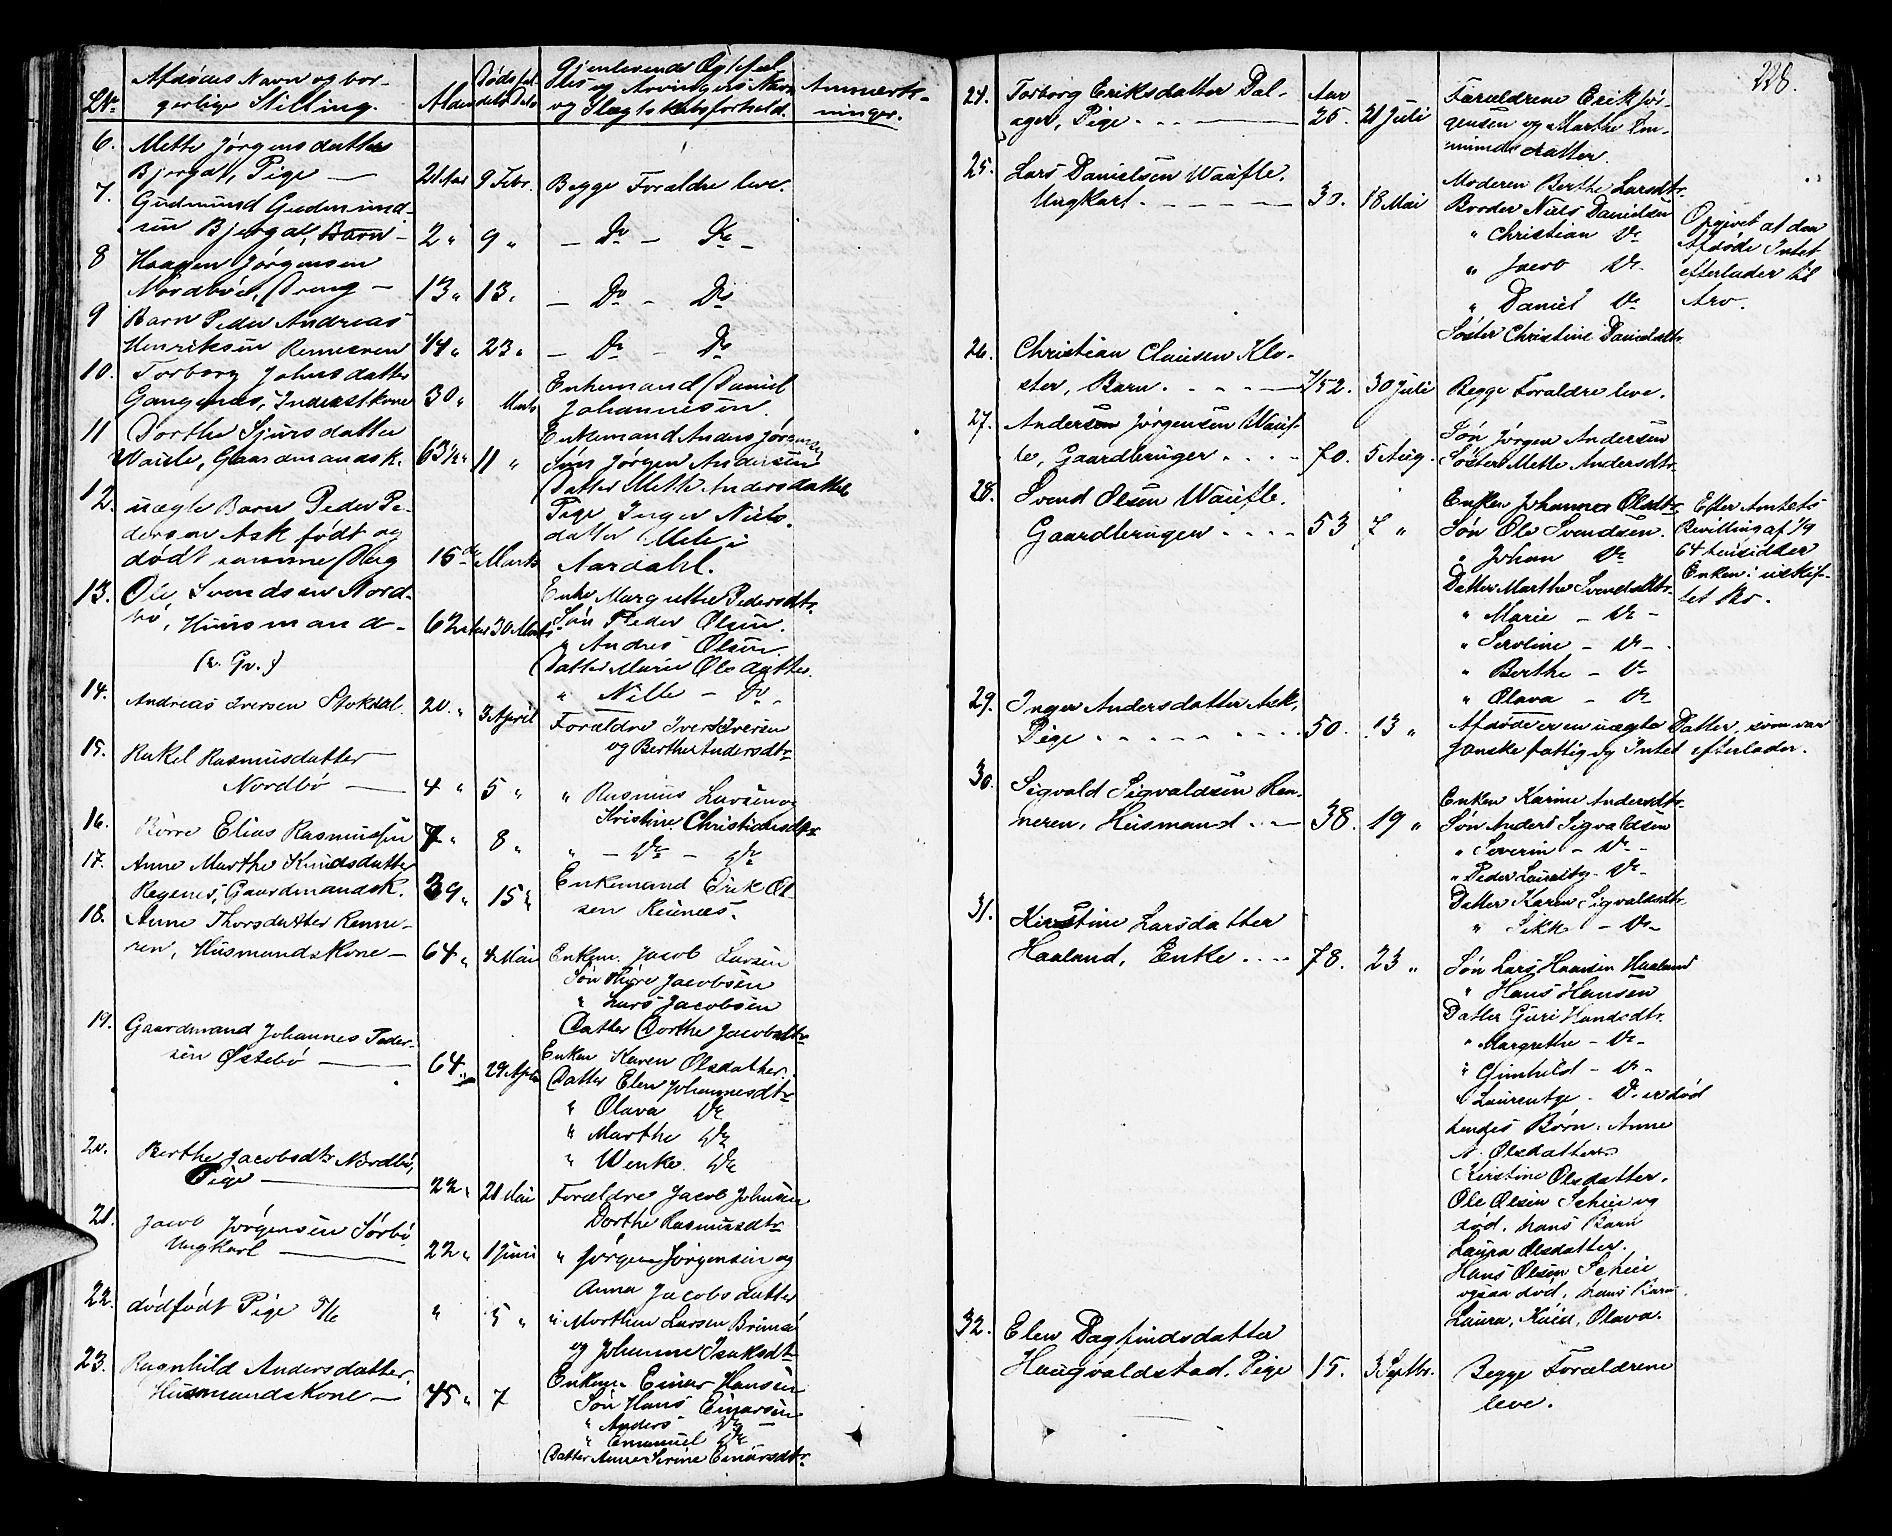 L№ Afdødes Navn og bor-
gerlige Stilling. Alder Dødsfal-
dets Dato Gjenlevende Ægtefæl-
les og Arvingers Navn
og Slægtskabsforhold. Anmærk-
ninger.
6. Mette Jørgensdatter
Bjergal, Pige — 21 Aar 9 Febr. Begge Forældre leve.
7. Gudmund Gudmund-
sen Bjergal, Barn — 2 " 9 " — Do — Do —
8 Haagen Jørgensen
Nordbøe, Dreng — 13 " 13 " — Do — Do
9 Barn Peder Andreas
Henriksen Renneren 1/4 " 23 " — Do — Do
10. Torborg Johnsdatter
Gangenæs, Inderstkone 30 " Marts Enkemand Daniel
Johannesen.
11 Dorthe Sjursdatter
Waule, Gaardmandsk. 63 1/2 " 11 " Enkemand Anders Jørgensen
Søn Jørgen Andersen
Datter Mette Andersdatter
12. uægte Barn Peder Pe-
dersen Ask født og
død samme Dag 15de Marts Pige Inger Niels-
datter Mele i
Aardahl.
13. Ole Svendsen Nord-
bø, Huusmand — 62 Aar 30 Marts Enke Margrethe Pedersdtr.
Søn Peder Olsen.
" Andres Olsen.
(v. Gr.) Datter Marie Olsdatter
" Nille — Do —
14. Andreas Iversen Stokdal. 20. " 3 April Forældre Iver Iversen
og Berthe Andersdtr
15. Rakel Rasmusdatter
Nordbø — 4 " 5 " " Rasmus Larsen og
Kristine Christiansdtr
16. Børre Elias Rasmussen 7 " 8 " " — Do — Do
17. Anne Marthe Knudsdatter
Regenes, Gaardmandsk. 39 " 15 " Enkemand Erik Ol-
sen Reines.
18. Anne Thorsdatter Renne-
ren, Husmandskone — 64 " 4 Mai Enkem. Jacob Larsen
Søn Thore Jacobsen
" Lars Jacobsen
Datter Dorthe Jacobsdtr
19. Gaardmand Johannes Peder-
sen Østebø — 64 " 29 April Enken Karen Olsdatter.
Datter Elen Johannesdtr
" Olava Do
" Marthe Do
" Wenke. Do
20. Berthe Jacobsdtr Nordbø,
Pige — 22 " 21 Mai Forældre Jacob Johnsen
Dorthe Rasmusdtr
21. Jacob Jørgensen Sørbø
Ungkarl — 22 " 1 Juni " Jørgen Jørgensen og
Anna Jacobsdatter
22. dødfødt Pige 5/6 " 5 " " Morthen Larsen Brimsø
og Johanne Isaksdtr
23. Ragnhild Andersdatter
Husmandskone — 45 " 7 Enkem. Einar Hansen
Søn Hans Einarsen
" Anders Do —
" Emanuel Do
Datter Anne Serine Einarsdtr
228.
24. Torborg Eriksdatter Dal-
ager, Pige . . . — Aar
25. 21 Juli Forældrene Erik Jør-
gensen og Marthe Em-
munds datter.
25. Lars Danielsen Waule.
Ungkarl . . . . 30. 18 Mai Moderen Berthe Larsdtr.
Broder Niels Danielsen
" Christian Do
" Jacob Do.
" Daniel Do
Søster Christine Danielsdtr. Opgivet at den
Afdøde Intet
efterlader til
Arv.
26. Christian Clausen Klo-
ster, Barn. . . . . — 1/52. 30 Juli Begge Forældre leve.
27. Andersen Jørgensen Wau-
le, Gaardbruger . . . . 70. 5 Aug. Søn Jørgen Andersen
Søster Mette Andersdtr.
28. Svend Olsen Waule.
Gaardbruger . . . . 53 7 " Enken Johanne Olsdtr.
Søn Ole Svendsen.
" Johan Do
Datter Marthe Svendsdtr.
" Marie — Do —
" Seroline — Do —
" Berthe — Do
" Olava — Do Efter Amtets
Bevilling af 1/9
64 hensidder
Enken i uskif-
tet Bo.
29. Inger Andersdatter Ask,
Pige . . . . . . . . 50. 13 " Afdøde er en uægte Datter, som var
ganske fattig og Intet efterlader.
30. Sigvald Sigvaldsen Ren-
neren, Husmand . . — 38. 19 " Enken Karine Andersdtr.
Søn Anders Sigvaldsen
" Severin — Do —
" Peder Lauritz — Do —
Datter Karen Sigvaldsdtr.
" Sikk — Do —
31. Kirstine Larsdatter
Haaland, Enke . . . . 78. 23 " Søn Lars Hansen Haaland
" Hans Hansen
Datter Guri Hansdtr.
" Margrethe — Do —
" Gunhild — Do —
" Laurentze — Do er død
hendes Børn. Anne
N. Olsdatter.
Kirstine Olsdatter.
Ole Olsen Scheie og
død, hans Barn
Laura Olsdatter.
Hans Olsen Scheie
ogsaa død, hans Barn
Laura, Kaien, Olava.
32. Elen Dagfindsdatter
Haugvaldstad. Pige 15. 3 Septbr. Begge Forældrene
leve.